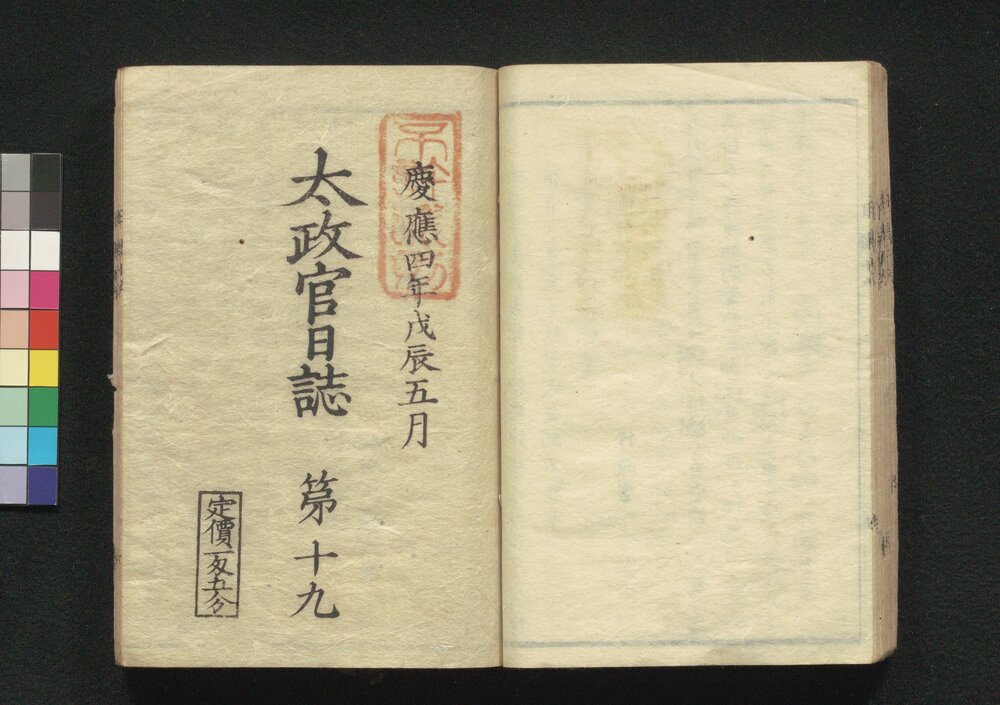 慶應四年戊辰五月
太政官日誌 第十九
定價一匁五分